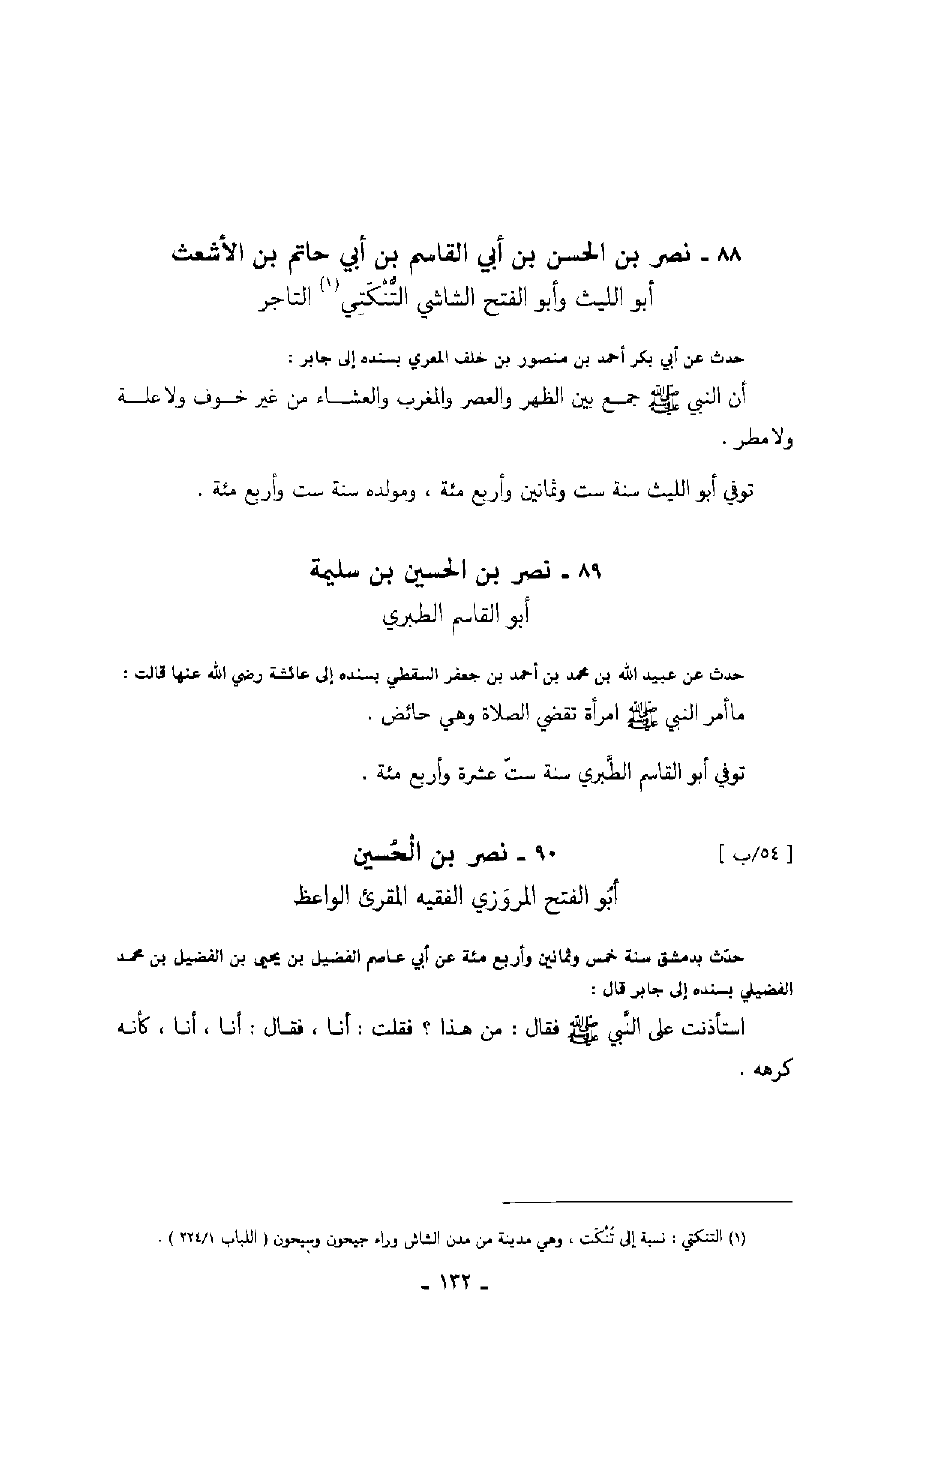 ٨٨ ـ نصر بن الحسن بن أبي القاسم بن أبي حاتم بن الأشعث
أبو الليث وأبو الفتح الشاشي التُّنْكَتِي(١) التاجر
حدث عن أبي بكر أحمد بن منصور بن خلف المغربي بسنده إلى جابر :
أن النبي ﷺ جمع بين الظهر والعصر والمغرب والعشاء من غير خوف ولا علة
ولا مطر .
توفي أبو الليث سنة ست وثمانين وأربع مئة ، ومولده سنة ست وأربع مئة .
٨٩ ـ نصر بن الحسين بن سليمة
أبو القاسم الطبري
حدث عن عبيد الله بن محمد بن أحمد بن جعفر السقطي بسنده إلى عائشة رضي الله عنها قالت :
ماأمر النبي ﷺ امرأة تقضي الصلاة وهي حائض .
توفي أبو القاسم الطَّبري سنة ستّ عشرة وأربع مئة .
[ ٥٤/ب ] ٩٠ ـ نصر بن الْحُسين
أبُو الفتح المروَزي الفقيه المقرئ الواعظ
حدّث بدمشق سنة خمس وثمانين وأربع مئة عن أبي عاصم الفضيل بن يحيى بن الفضيل بن محمد
الفضيلي بسنده إلى جابر قال :
استأذنت على النَّبي ﷺ فقال : من هذا ؟ فقلت : أنا ، فقال : أنا ، أنا ، كأنه
كرهه .
(١) التنكتي : نسبة إلى تُنْكَت ، وهي مدينة من مدن الشاش وراء جيحون وسيحون ( اللباب ٢٢٤/١ ) .
ـ ١٣٢ ـ